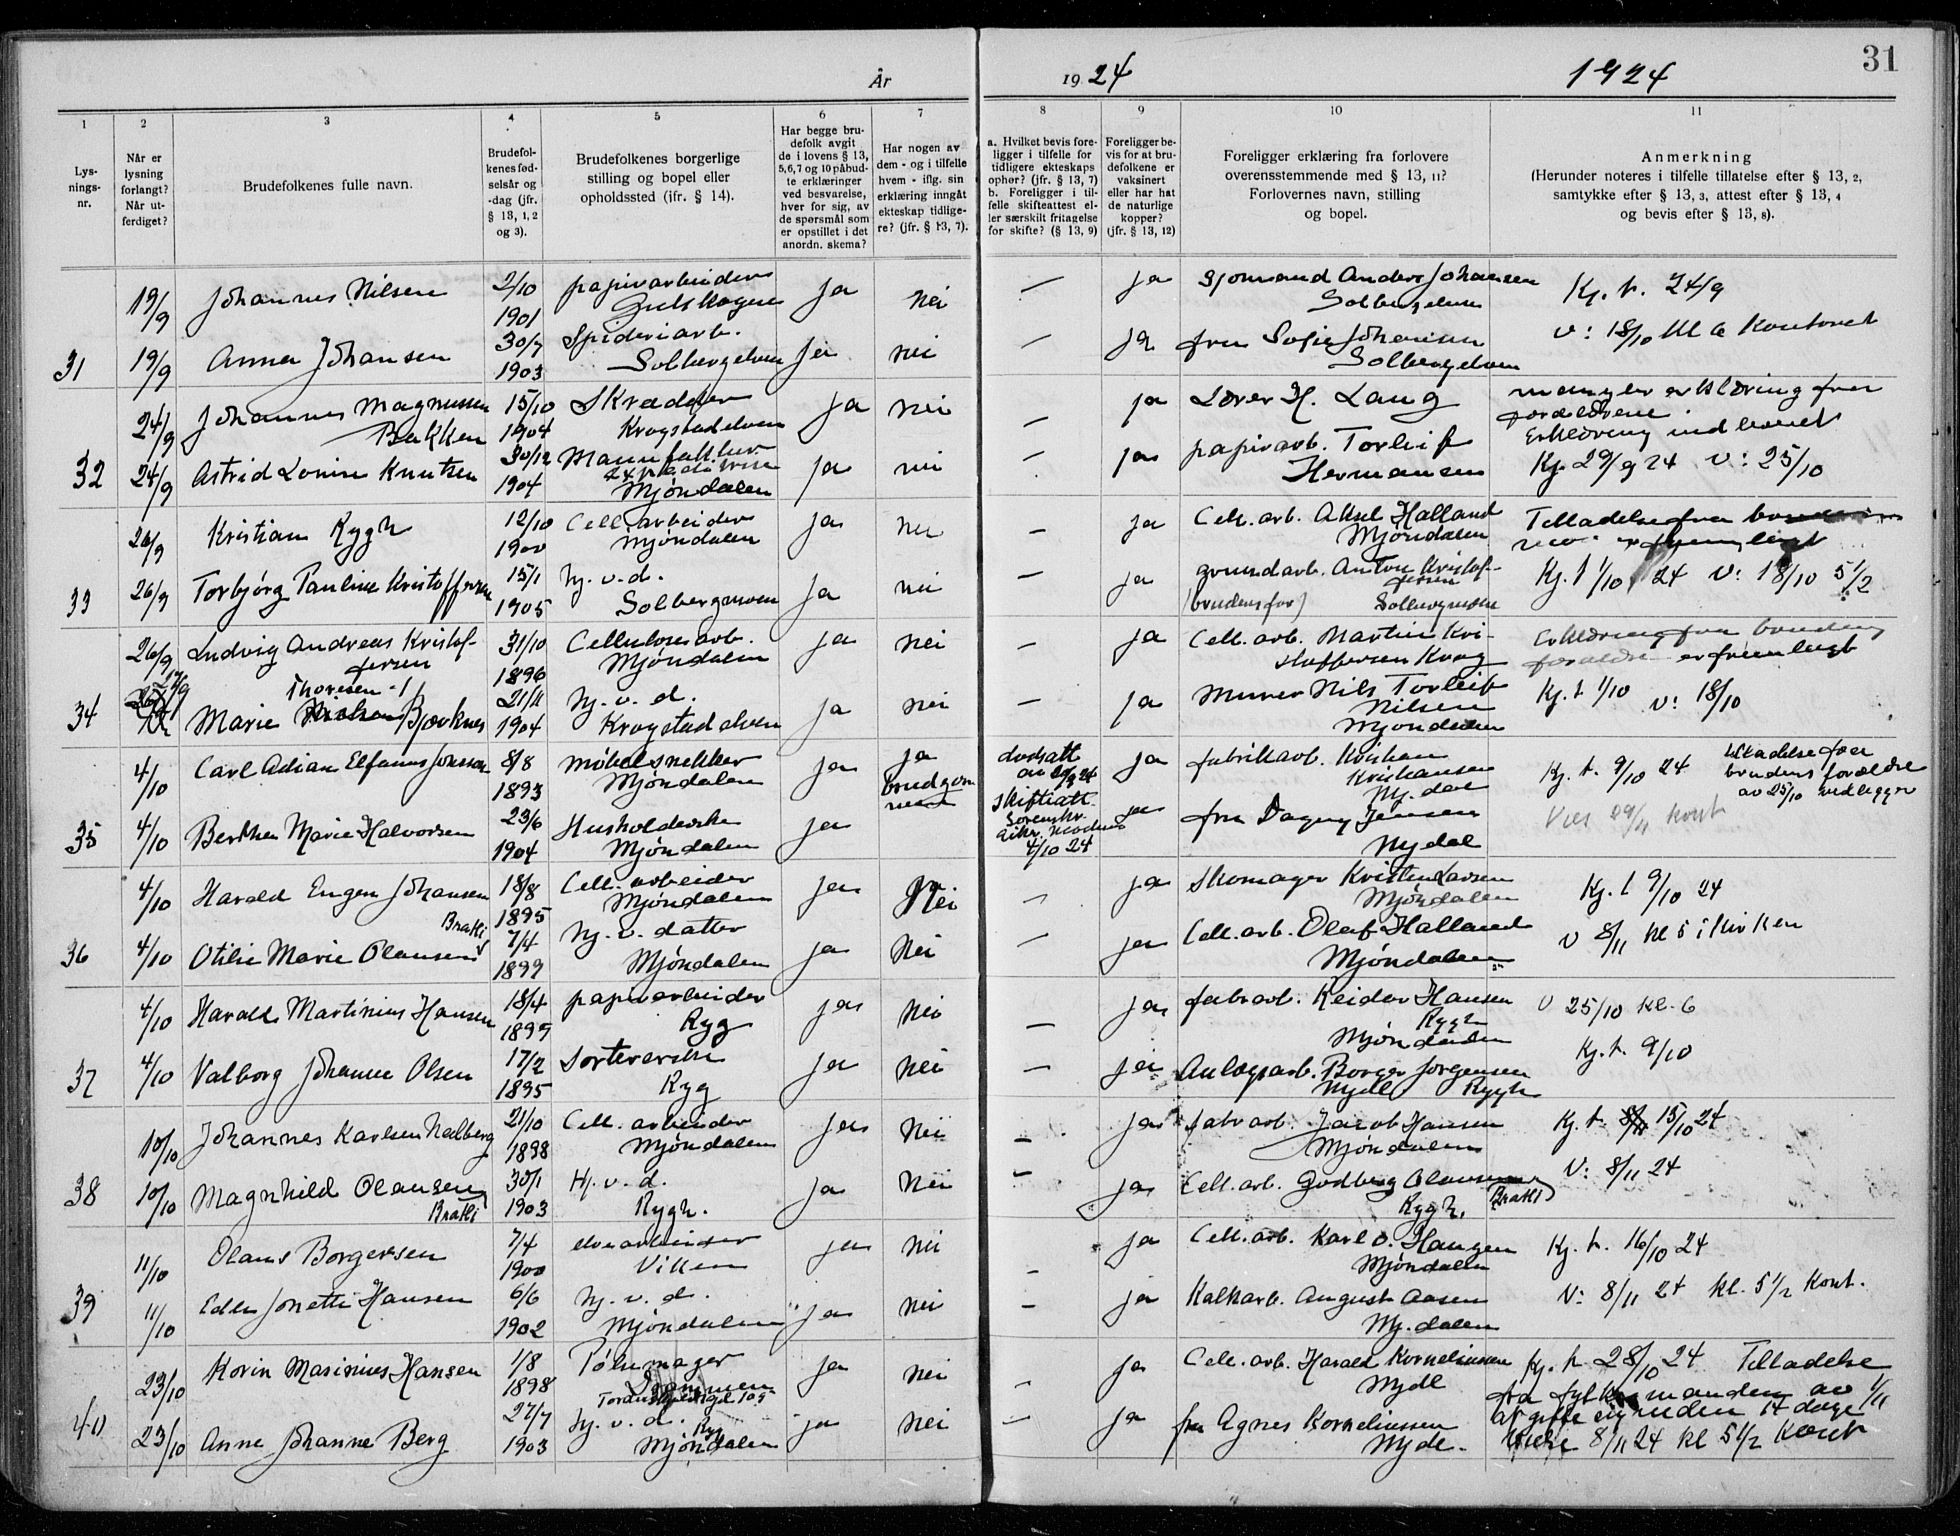 31
År 19 24 1924
1 2 3 4 5 6 7 8 9 10 11
Lys-
nings-
nr.
Når er
lysning
forlangt?
Når ut-
ferdiget?
Brudefolkenes fulle navn.
Brudefol-
kenes fød-
selsår og
-dag (jfr.
§ 13, 1, 2
og 3).
Brudefolkenes borgerlige
stilling og bopel eller
opholdssted (jfr. § 14).
Har begge bru-
defolk avgit
de i lovens § 13,
5, 6, 7 og 10 påbud-
te erklæringer
ved besvarelse,
hver for sig, av
de spørsmål som
er opstillet i det
anordn. skema?
Har nogen av
dem - og i tilfelle
hvem - iflg. sin
erklæring inngått
ekteskap tidlige-
re? (jfr. § 13, 7).
a. Hvilket bevis fore-
ligger i tilfelle for
tidligere ekteskaps
ophør? (jfr. § 13, 7)
b. Foreligger i til-
felle skifteattest el-
ler særskilt fritagelse
for skifte? (§ 13, 9)
Foreligger be-
vis for at bru-
defolkene er
vaksinert
eller har hat
de naturlige
kopper?
(jfr. § 13, 12)
Foreligger erklæring fra forlovere
overensstemmende med § 13, 11?
Forlovernes navn, stilling
og bopel.
Anmerkning
(Herunder noteres i tilfelle tillatelse efter § 13, 2,
samtykke efter § 13, 3, attest efter § 13, 4
og bevis efter § 13, 8).
19/9 Johannes Nilsen 2/10 1901 papirarbeider Gulskogen ja nei — ja Sjømand Anders Johansen Solbergelven Kj. t. 24/9
31 19/9 Anna Johansen 30/7 1903 Spideriarb. Solbergelven ja nei — ja fru Sofie Johansen Solbergelven v: 18/10 kl 6 Kontoret
24/9 Johannes Magnussen Bakken 15/10 1904 Skrædder Krogstadelven ja nei — ja Lærer H. Lang mangler erklæring fra forældrene
Erklæring indlevert
32 24/9 Astrid Lovise Knutsen 30/12 1904 Mjøndalen ja nei — ja papirarb. Torleif Hermansen Kj. 29/9 24 v: 25/10
26/9 Kristian Rygh 12/10 1900 Cell. arbeider Mjøndalen ja nei — ja Cell. arb. Aksel Halland Mjøndalen Tilladelse fra
33 26/9 Torbjørg Pauline Kristoffersen 15/1 1905 hj. v. d. Solbergmoen ja nei — ja grundarb. Anton Kristoffersen (brudens far) Solbergmoen Kj. t 1/10 24 v: 18/10 5 1/2
26/9 Ludvig Andreas Kristoffersen 31/10 1896 Cellulosearb. Mjøndalen ja nei — ja Cell. arb. Martin Kristoffersen Krog Erklæring fra brudens forældre er fremlagt
34 Marie Thoresen Bjerknes 21/11 1904 hj. v. d. Krogstadelven ja nei — ja Murer Nils Torleif Nilsen Mjøndalen Kj. t 1/10 v: 18/10
4/10 Carl Adrian Elfanus Jonsson 8/8 1893 møbelsnekker Mjøndalen ja ja brudgommen dødsatt. ja fabrikarb. Kristian Kristiansen Mj. dal Kj. t. 9/10 24 tilladelse fra brudens forældre av 25/10 vedlegger
35 4/10 Berthe Marie Halvorsen 23/6 1904 Husholderske Mjøndalen ja skifteatt. Sorenskr. 4/10 24 ja fru Dagny Jensen Mjdal Vies 29/11 kont
4/10 Harald Eugen Johansen 18/8 1895 Cell. arbeider Mjøndalen ja Nei — ja Skomager Kristen Larsen Mjøndalen Kj. t 9/10 24
36 4/10 Otilie Marie Olausen Brakli 7/4 1899 hj. v. datter Mjøndalen ja Nei — ja Cell. arb. Olaf Halland Mjøndalen v 8/11 kl 5 i kirken
4/10 Harald Martinius Hansen 18/4 1899 papirarbeider Ryg ja Nei — ja fabrarb. Reidar Hansen Rygh Mjøndalen v 25/10 kl. 6
37 4/10 Valborg Johanne Olsen 17/2 1895 Sortererske Ryg ja Nei — ja Anlægsarb. Borger Jørgensen Mjdl Rygh Kj. t. 9/10
10/10 Johannes Karlsen Nedberg 21/10 1898 Cell. arbeider Mjøndalen ja Nei — ja fabrarb. Jacob Hansen Mjøndalen Kj. t. 15/10 24
38 10/10 Magnhild Olausen Brakli 30/1 1903 Hj. v. d. Rygh. ja Nei — ja Cell. arb. Godberg Olausen Brakli Rygh. V: 8/11 24
11/10 Olaus Borgersen 7/4 1900 elvearbeider Viken ja Nei — ja Cell. arb. Karl O. Haugen Mjøndalen Kj. t. 16/10 24
39 11/10 Edle Jonette Hansen 6/6 1902 hj. v. d. Mjøndalen ja Nei — ja Kalkarb. August Aasen Mj. dalen V: 8/11 24 kl. 5 1/2 Kont.
23/10 Korin Masinius Hansen 1/8 1898 Pølsemager Drammen ja Nei — ja Cell. arb. Harald Korneliussen Mjdl Kj. t. 28/10 24 Tilladelse
fra fylkesmanden av 1/11
40 23/10 Anne Johanne Berg 27/7 1903 hj. v. d. Ryg Mjøndalen ja Nei — ja fru Agnes Korneliussen Mjdl. at gifte sig inden 14 dage
Vielse 8/11 24 kl 5 1/2 Kont